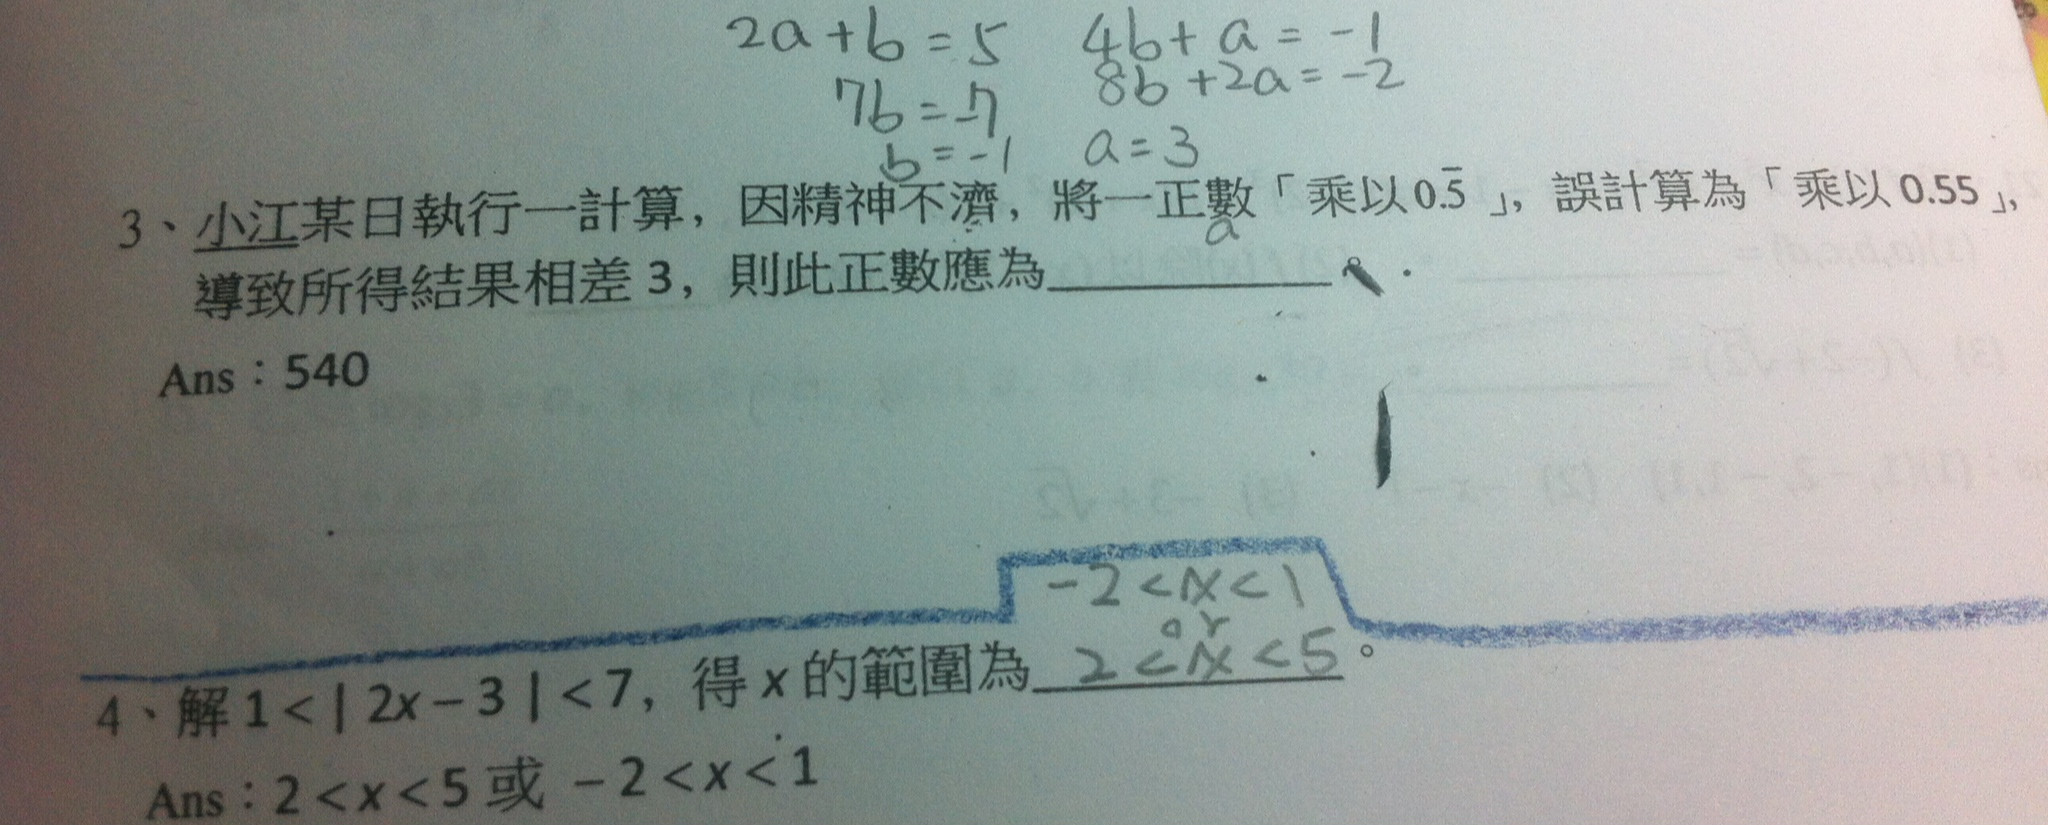 2a+b=5 4b+a=-1
7b=-7 8b+2a=-2
b=-1 a=3
3、小江某日執行一計算，因精神不濟，將一正數「乘以0.5̅」，誤計算為「乘以0.55」，
a
導致所得結果相差3，則此正數應為__________。
Ans：540
-2<x<1
or
4、解1<|2x-3|<7，得x的範圍為2<x<5。
Ans：2<x<5或 -2<x<1